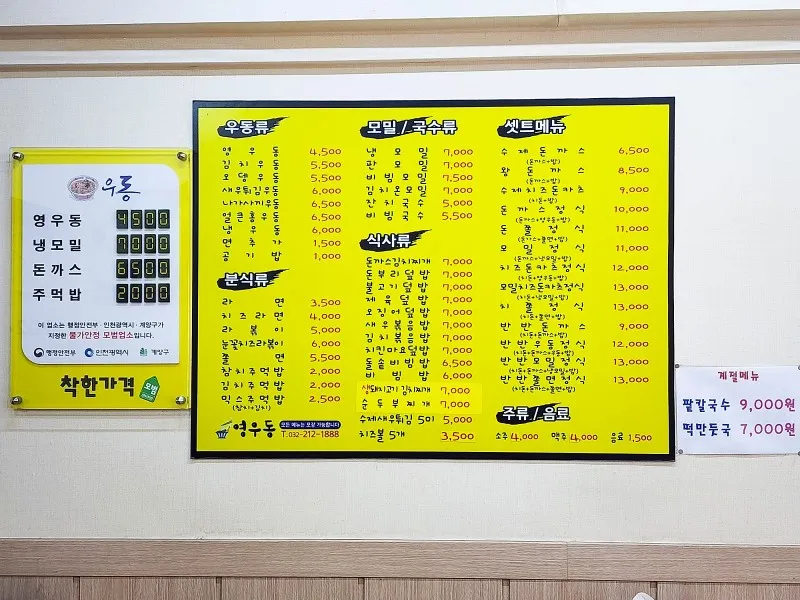 우동
영우동 4500
냉모밀 7000
돈까스 6500
주먹밥 2000
이 업소는 행정안전부·인천광역시·계양구가
지정한 물가안정 모범업소입니다.
행정안전부 인천광역시 계양구
착한가격
모범
우동류
영우동 4,500
김치우동 5,500
오뎅우동 5,500
새우튀김우동 6,000
나가사끼우동 6,500
얼큰홍우동 6,500
냉우동 6,000
면추가 1,500
공기밥 1,000
분식류
라면 3,500
치즈라면 4,000
라볶이 5,000
눈꽃치즈라볶이 6,000
쫄면 5,500
참치주먹밥 2,000
김치주먹밥 2,000
믹스주먹밥 2,500
(참치+김치)
영우동 모든 메뉴는 포장 가능합니다
T.032-212-1888
모밀/국수류
냉모밀 7,000
판모밀 7,000
비빔모밀 7,500
김치온모밀 7,000
잔치국수 5,000
비빔국수 5,500
식사류
돈까스김치찌개 7,000
돈부리덮밥 7,000
불고기덮밥 7,000
제육덮밥 7,000
오징어덮밥 7,000
새우볶음밥 7,000
김치볶음밥 7,000
치킨마요덮밥 7,000
돌솥비빔밥 6,500
비빔밥 6,000
생돼지고기 김치찌개 7,000
순두부찌개 7,000
수제새우튀김 5미 5,000
치즈볼 5개 3,500
셋트메뉴
수제돈까스 6,500
(돈까스+밥)
왕돈까스 8,500
(돈까스+밥)
수제치즈돈카츠 9,000
(치돈+밥)
돈까스정식 10,000
(돈까스+영우동+밥)
돈쫄정식 11,000
(돈까스+쫄면+밥)
돈모밀정식 11,000
(돈까스+냉모밀+밥)
치즈돈카츠정식 12,000
(치돈+영우동+밥)
모밀치즈돈카츠정식 13,000
(치돈+냉모밀+밥)
치쫄정식 13,000
(치돈+쫄면+밥)
반반돈까스 9,000
(치돈+돈까스+밥)
반반우동정식 12,000
(치돈+돈까스+우동+밥)
반반모밀정식 13,000
(치돈+돈까스+냉모밀+밥)
반반쫄면정식 13,000
(치돈+돈까스+쫄면+밥)
주류/음료
소주 4,000 맥주 4,000 음료 1,500
계절메뉴
팥칼국수 9,000원
떡만둣국 7,000원